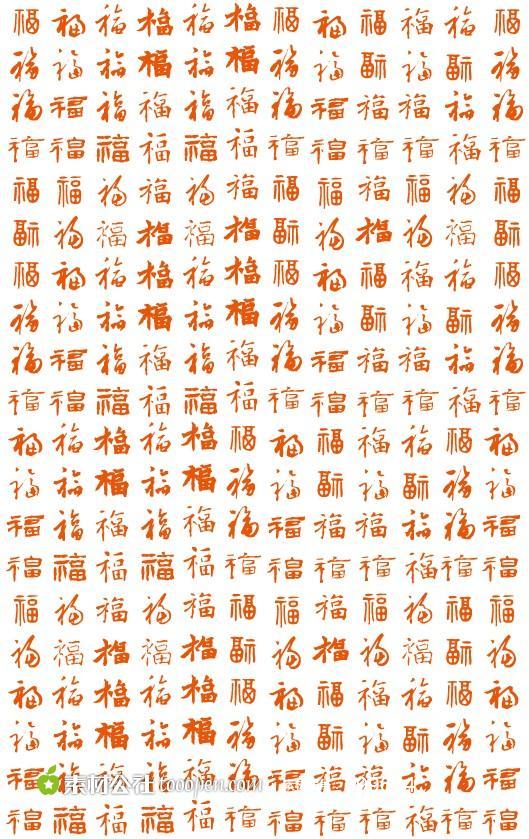 福福福福福福福福福福福福
福福福福福福福福福福福福
福福福福福福福福福福福福
福福福福福福福福福福福福
福福福福福福福福福福福福
福福福福福福福福福福福福
福福福福福福福福福福福福
福福福福福福福福福福福福
福福福福福福福福福福福福
福福福福福福福福福福福福
福福福福福福福福福福福福
福福福福福福福福福福福福
福福福福福福福福福福福福
福福福福福福福福福福福福
福福福福福福福福福福福福
福福福福福福福福福福福福
福福福福福福福福福福福福
福福福福福福福福福福福福
福福福福福福福福福福福福
素材公社 tooopen.com
福福福福福福福福福福福福